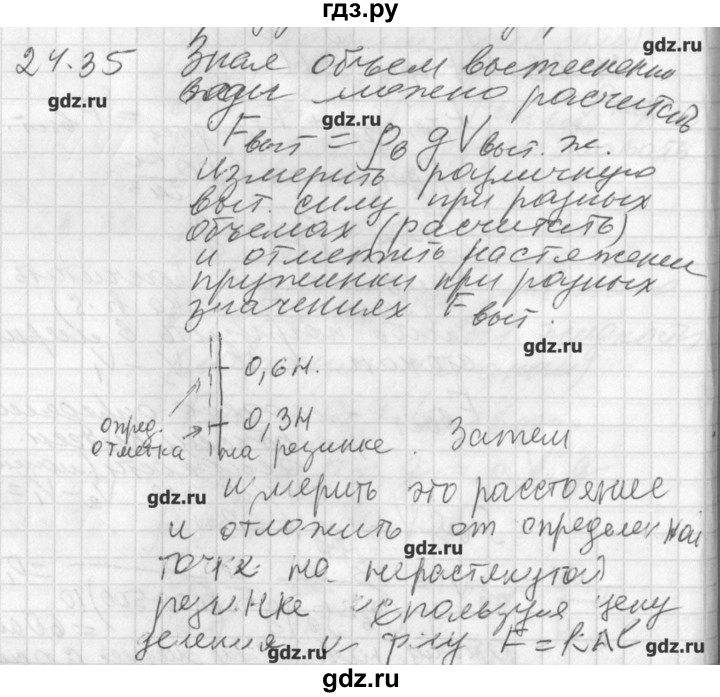 гдз.ру
24.35 Зная объем вытеснению
gdz.ru
воды можно расчитать
gdz.ru
gdz.ru
Fвыт = ρв g Vвыт. ж.
измерить различную
выт. силу при разных
объемах (расчитать)
и отметить растяжении
пружинки при разных
значениях Fвыт.
gdz.ru
0,6Н.
0,3Н
опред.
отметка на резинке. Затем
gdz.ru
измерить это расстояние
и отложить от определенной
gdz.ru
точки на нерастянутой
резинке используя цену
деления и ф-лу F = kΔl
gdz.ru
gdz.ru
gdz.ru